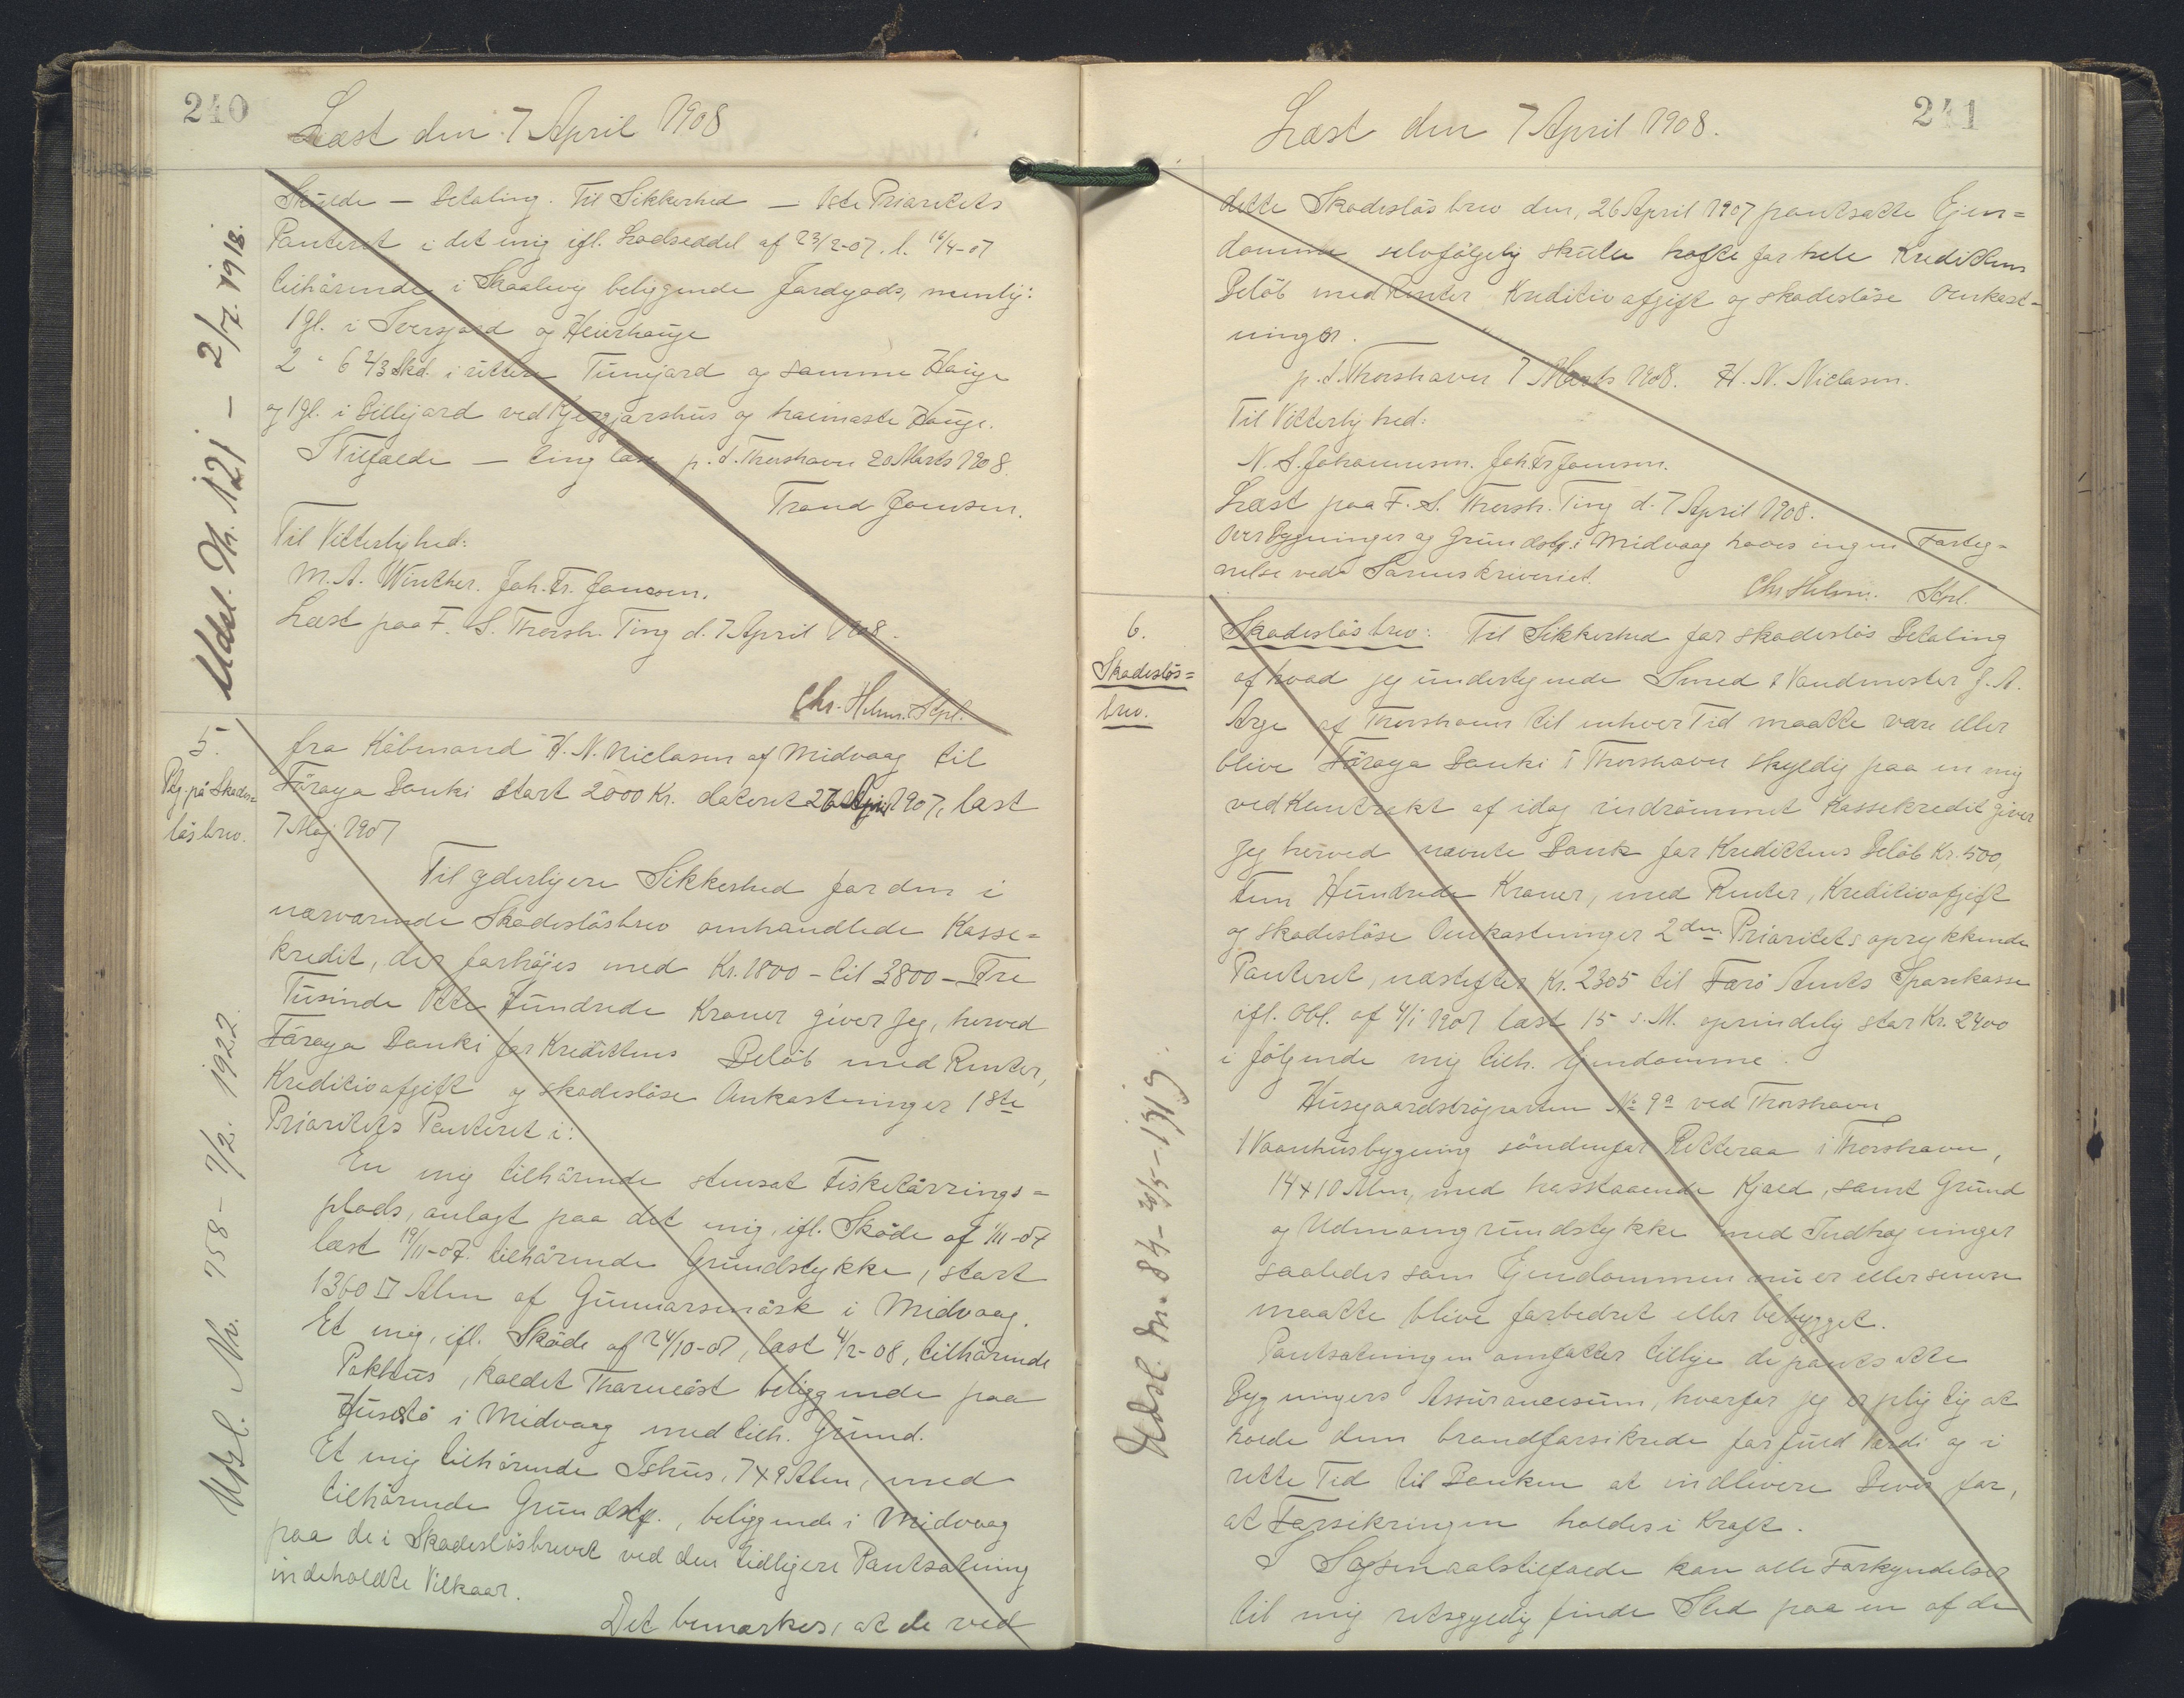 240
Læst den 7 April 1908
Udsl. Nr. 121 — 2/7. 1918.
Skylds — Betaling. Til Sikkerhed — 1ste Prioritets
Panteret i det mig ifl. Lodseddel af 23/2-07. l. 16/4-07
tilhørende i Skaalevig beliggende Jordgods, nemlig:
1 gl. i og Heierhauge
2 " 6 2/3 Skd. i Tunijard og samme Hauge
og 1 gl. i ved og Hauge.
I Tilfælde — ting læs p. t. Thorshavn 20 Marts 1908.
Trond Joensen.
Til Vitterlighed:
M. A. Winther. Joh. Fr. Joensen.
Læst paa F. S. Thorsh. Ting d. 7 April 1908.
Chr. Helms. Stpl.
5.
Ptg. på Skades=
løsbrev.
Udsl. Nr. 758 — 7/2. 1922.
fra Købmand H. N. Niclasen af Midvaag til
Føroya Banki stort 2000 Kr. dateret 26 April 1907, læst
7 Maj 1907
Til yderligere Sikkerhed for den i
nærværende Skadesløsbrev omhandlede Kasse=
kredit, der forhøjes med Kr. 1800 – til 3800 – Tre
Tusinde Otte Hundrede Kroner giver Jeg, herved
Føroya Banki for Kredittens Beløb med Renter,
Kreditivafgift og skadesløse Omkostninger 1ste
Prioritets Panteret i:
En mig tilhørende stensat Fisketørrings=
plads, anlagt paa det mig, ifl. Skøde af 1/11-07
læst 19/11-07. tilhørende Grundstykke, stort
1360 □ Alen af Gunnarsmørk i Midvaag.
Et mig, ifl. Skøde af 24/10-07, læst 4/2-08, tilhørende
Pakhus, kaldet beliggende paa
Husatø i Midvaag med tilh. Grund.
Et mig tilhørende Ishus, 7 x 9 Alen, med
tilhørende Grundstk., beliggende i Midvaag
paa de i Skadesløsbrevet ved den tidligere Pantsætning
indeholdte Vilkaar.
Det bemærkes, at de ved
241
Læst den 7 April 1908.
dette Skadesløsbrev den, 26 April 1907 pantsatte Ejen=
domme selvfølgelig skulle hæfte for hele Kredittens
Beløb med Renter Kreditivafgift og skadesløse Omkost=
ninger.
p. t. Thorshavn 7 Marts 1908. H. N. Niclasen.
Til Vitterlighed:
N. S. Johannesen. Joh. Fr. Joensen.
Læst paa F. S. Thorsh. Ting d. 7 April 1908.
Over Bygninger og Grundstk. i Midvaag haves ingen Forteg=
nelse ved Sorenskriveriet.
Chr. Helms. Stpl.
6.
Skadesløs=
brev.
Udsl. Nr. 84 — 30/5 — 1919.
Skadesløsbrev: Til Sikkerhed for skadesløs Betaling
af hvad jeg undertegnede Smed & Vandmester J. A.
Arge af Thorshavn til enhver Tid maatte være eller
blive Føroya Banki i Thorshavn skyldig paa en mig
ved Kontrakt af idag indrømmet Kassekredit giver
Jeg herved nævnte Bank for Kredittens Beløb Kr. 500,
Fem Hundrede Kroner, med Renter, Kreditivafgift
og skadesløse Omkostninger 2den Prioritets oprykkende
Panteret, næstefter Kr. 2305 til Færø Amts Sparekasse
ifl. Obl. af 4/1 1907 læst 15 s. M. oprindelig stor Kr. 2400
i følgende mig tilh. Ejendomme:
Husgaardstrøparten No 9a ved Thorshavn
1 Vaanhusbygning søndenfor Rættaraa i Thorshavn,
14 x 10 Alen, med hosstaaende Kjæld, samt Grund
og Udmomgrundstykke med Indhegninger
saaledes som Ejendommen nu er eller senere
maatte blive forbedret eller bebygget.
Pantsætningen omfatter tillige de pantsatte
Bygningers Assurancesum, hvorfor jeg er pligtig at
holde dem brandforsikrede for fuld Værdi og i
rette Tid til Banken at indlevere Bevis for,
at Forsikringen holdes i Kraft.
I Søgsmaalstilfælde kan alle Forkyndelser
til mig retsgyldig finde Sted paa en af de